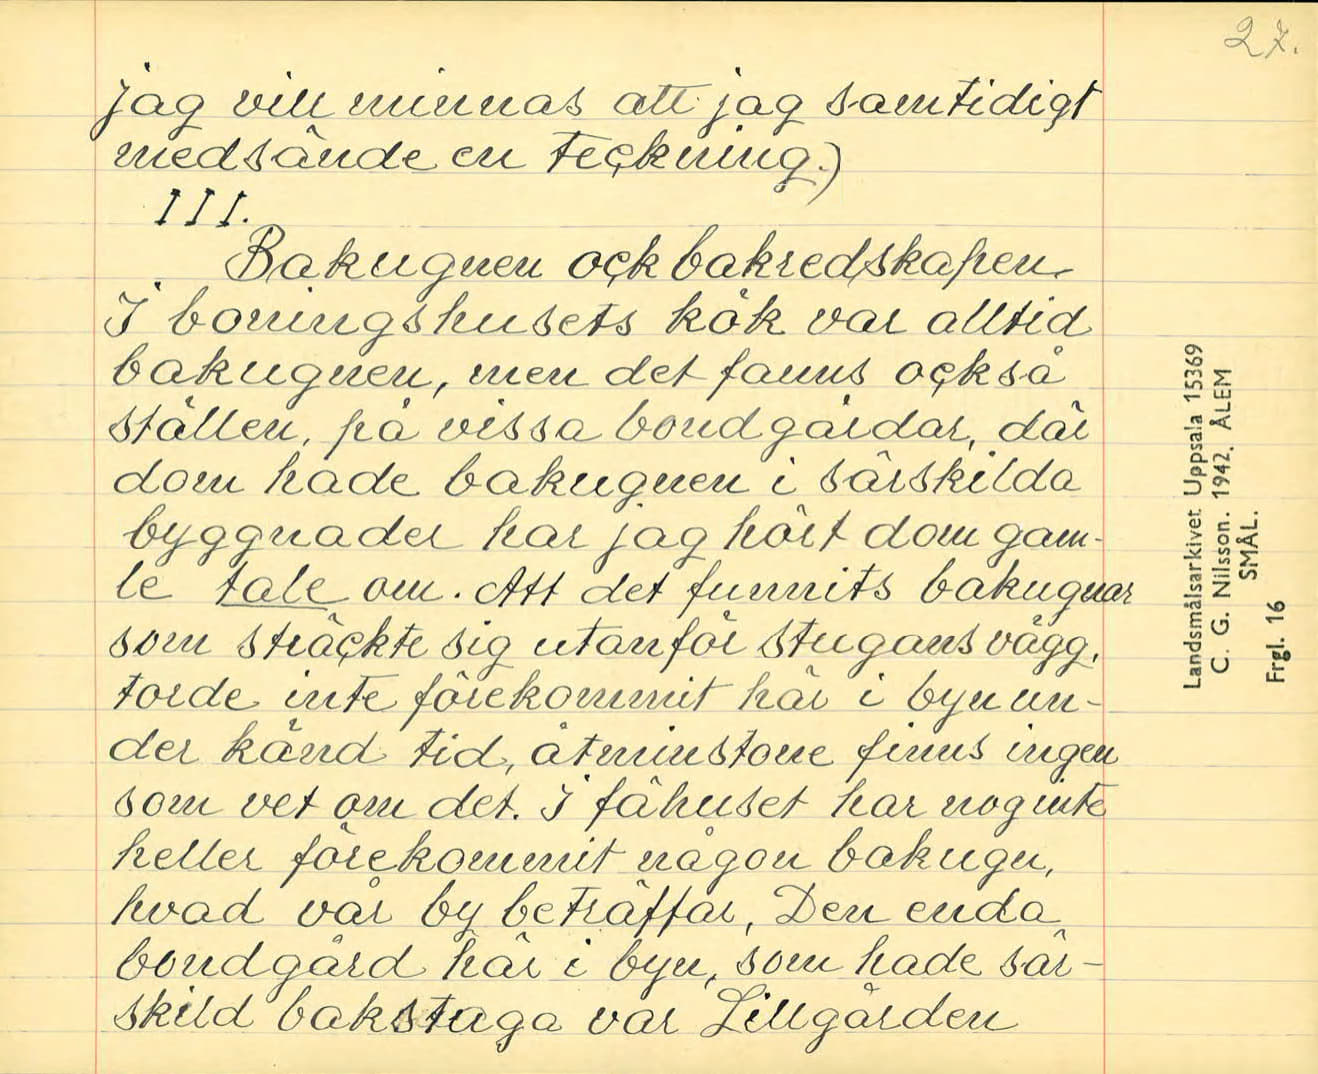 27.
jag vill minnas att jag samtidigt
medsände en teckning.)
III.
Bakugnen ock bakredskapen.
I boningshusets kök var alltid
bakugnen, men det fanns också
ställen, på vissa bondgårdar, där
dom hade bakugnen i särskilda
byggnader har jag hört dom gam-
le tale om. Att det funnits bakugnar
som sträckte sig utanför stugans vägg,
torde inte förekommit här i byn un-
der känd tid, åtminstone finns ingen
som vet om det. I fähuset har nog inte
heller förekommit någon bakugn,
hvad vår by beträffar, Den enda
bondgård här i byn, som hade sär-
skild bakstuga var Lillgården
Landsmålsarkivet Uppsala 15369
C. G. Nilsson. 1942. ÅLEM
SMÅL.
Frgl. 16